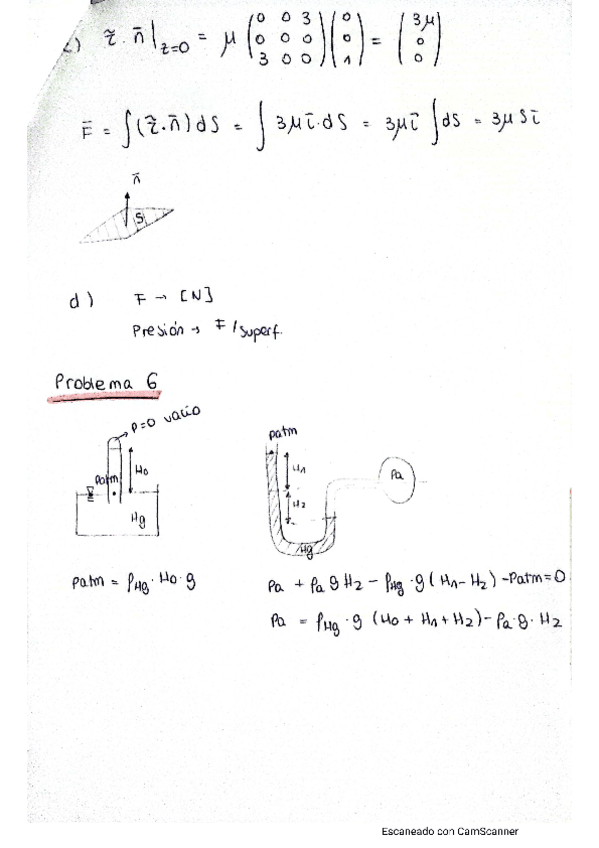 c) τ̃ · n̄ |z=0 = μ (0 0 3 / 0 0 0 / 3 0 0) (0 / 0 / 1) = (3μ / 0 / 0)
F̄ = ∫(τ̃·n̄)dS = ∫ 3μī·dS = 3μī ∫dS = 3μSī
n̄
S
d) F → [N]
Presión → F/superf.
Problema 6
P=0 vacío
Patm
H0
Hg
Patm
H1
H2
Hg
Pa
Patm = ρHg · H0 · g
Pa + ρa g H2 - ρHg · g (H1 - H2) - Patm = 0
Pa = ρHg · g (H0 + H1 + H2) - ρa · g · H2
Escaneado con CamScanner